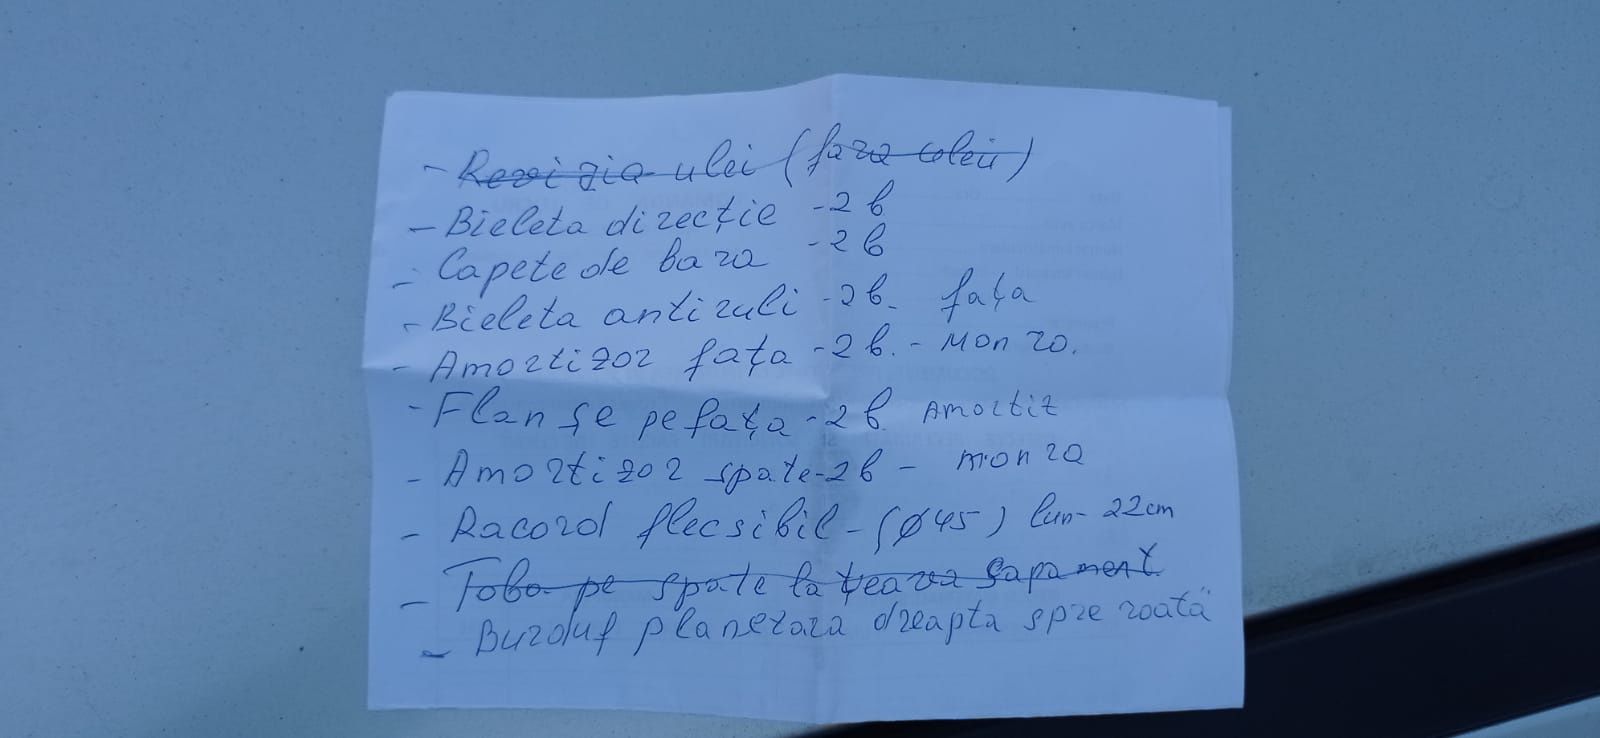 - Revizia ulei (fara uleiu)
- Bieleta direcție - 2 b
- Capete de bara - 2 b
- Bieleta antiruli - 2 b. fața
- Amortizor fața - 2 b. - Monro.
- Flanșe pe fața - 2 b. Amortiz
- Amortizor spate - 2 b - monro
- Racord flecsibil - (Ø45) lun- 22cm
- Toba pe spate la țeava eșapament
- Burduf planetara dreapta spre roată